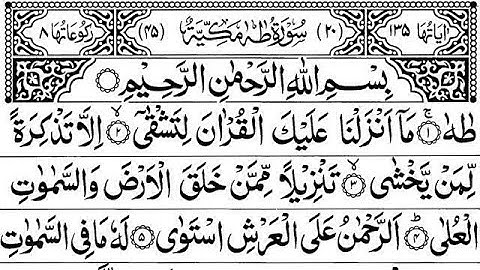 اٰیَاتُهَا ۱۳۵ (۲۰) سُوْرَةُ طٰهٰ مَكِّيَّةٌ (۴۵) رُكُوْعَاتُهَا ۸
بِسْمِ اللّٰهِ الرَّحْمٰنِ الرَّحِيْمِ
طٰهٰ ۚ﴿۱﴾ مَاۤ اَنْزَلْنَا عَلَيْكَ الْقُرْاٰنَ لِتَشْقٰۤى ۙ﴿۲﴾ اِلَّا تَذْكِرَةً
لِّمَنْ يَّخْشٰى ۙ﴿۳﴾ تَنْزِيْلًا مِّمَّنْ خَلَقَ الْاَرْضَ وَالسَّمٰوٰتِ
الْعُلٰى ؕ﴿۴﴾ اَلرَّحْمٰنُ عَلَى الْعَرْشِ اسْتَوٰى ﴿۵﴾ لَهٗ مَا فِى السَّمٰوٰتِ